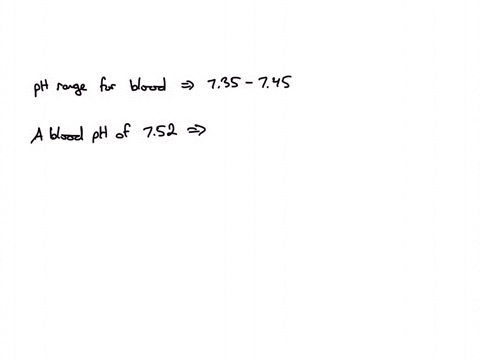 pH range for blood ⇒ 7.35 - 7.45
A blood pH of 7.52 ⇒